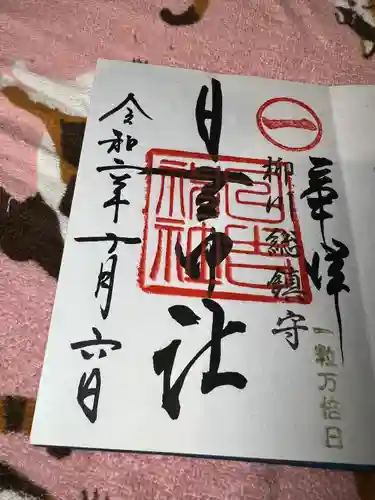 奉拝
一粒万倍日
一
柳川総鎮守
日吉神社
令和二年十月六日